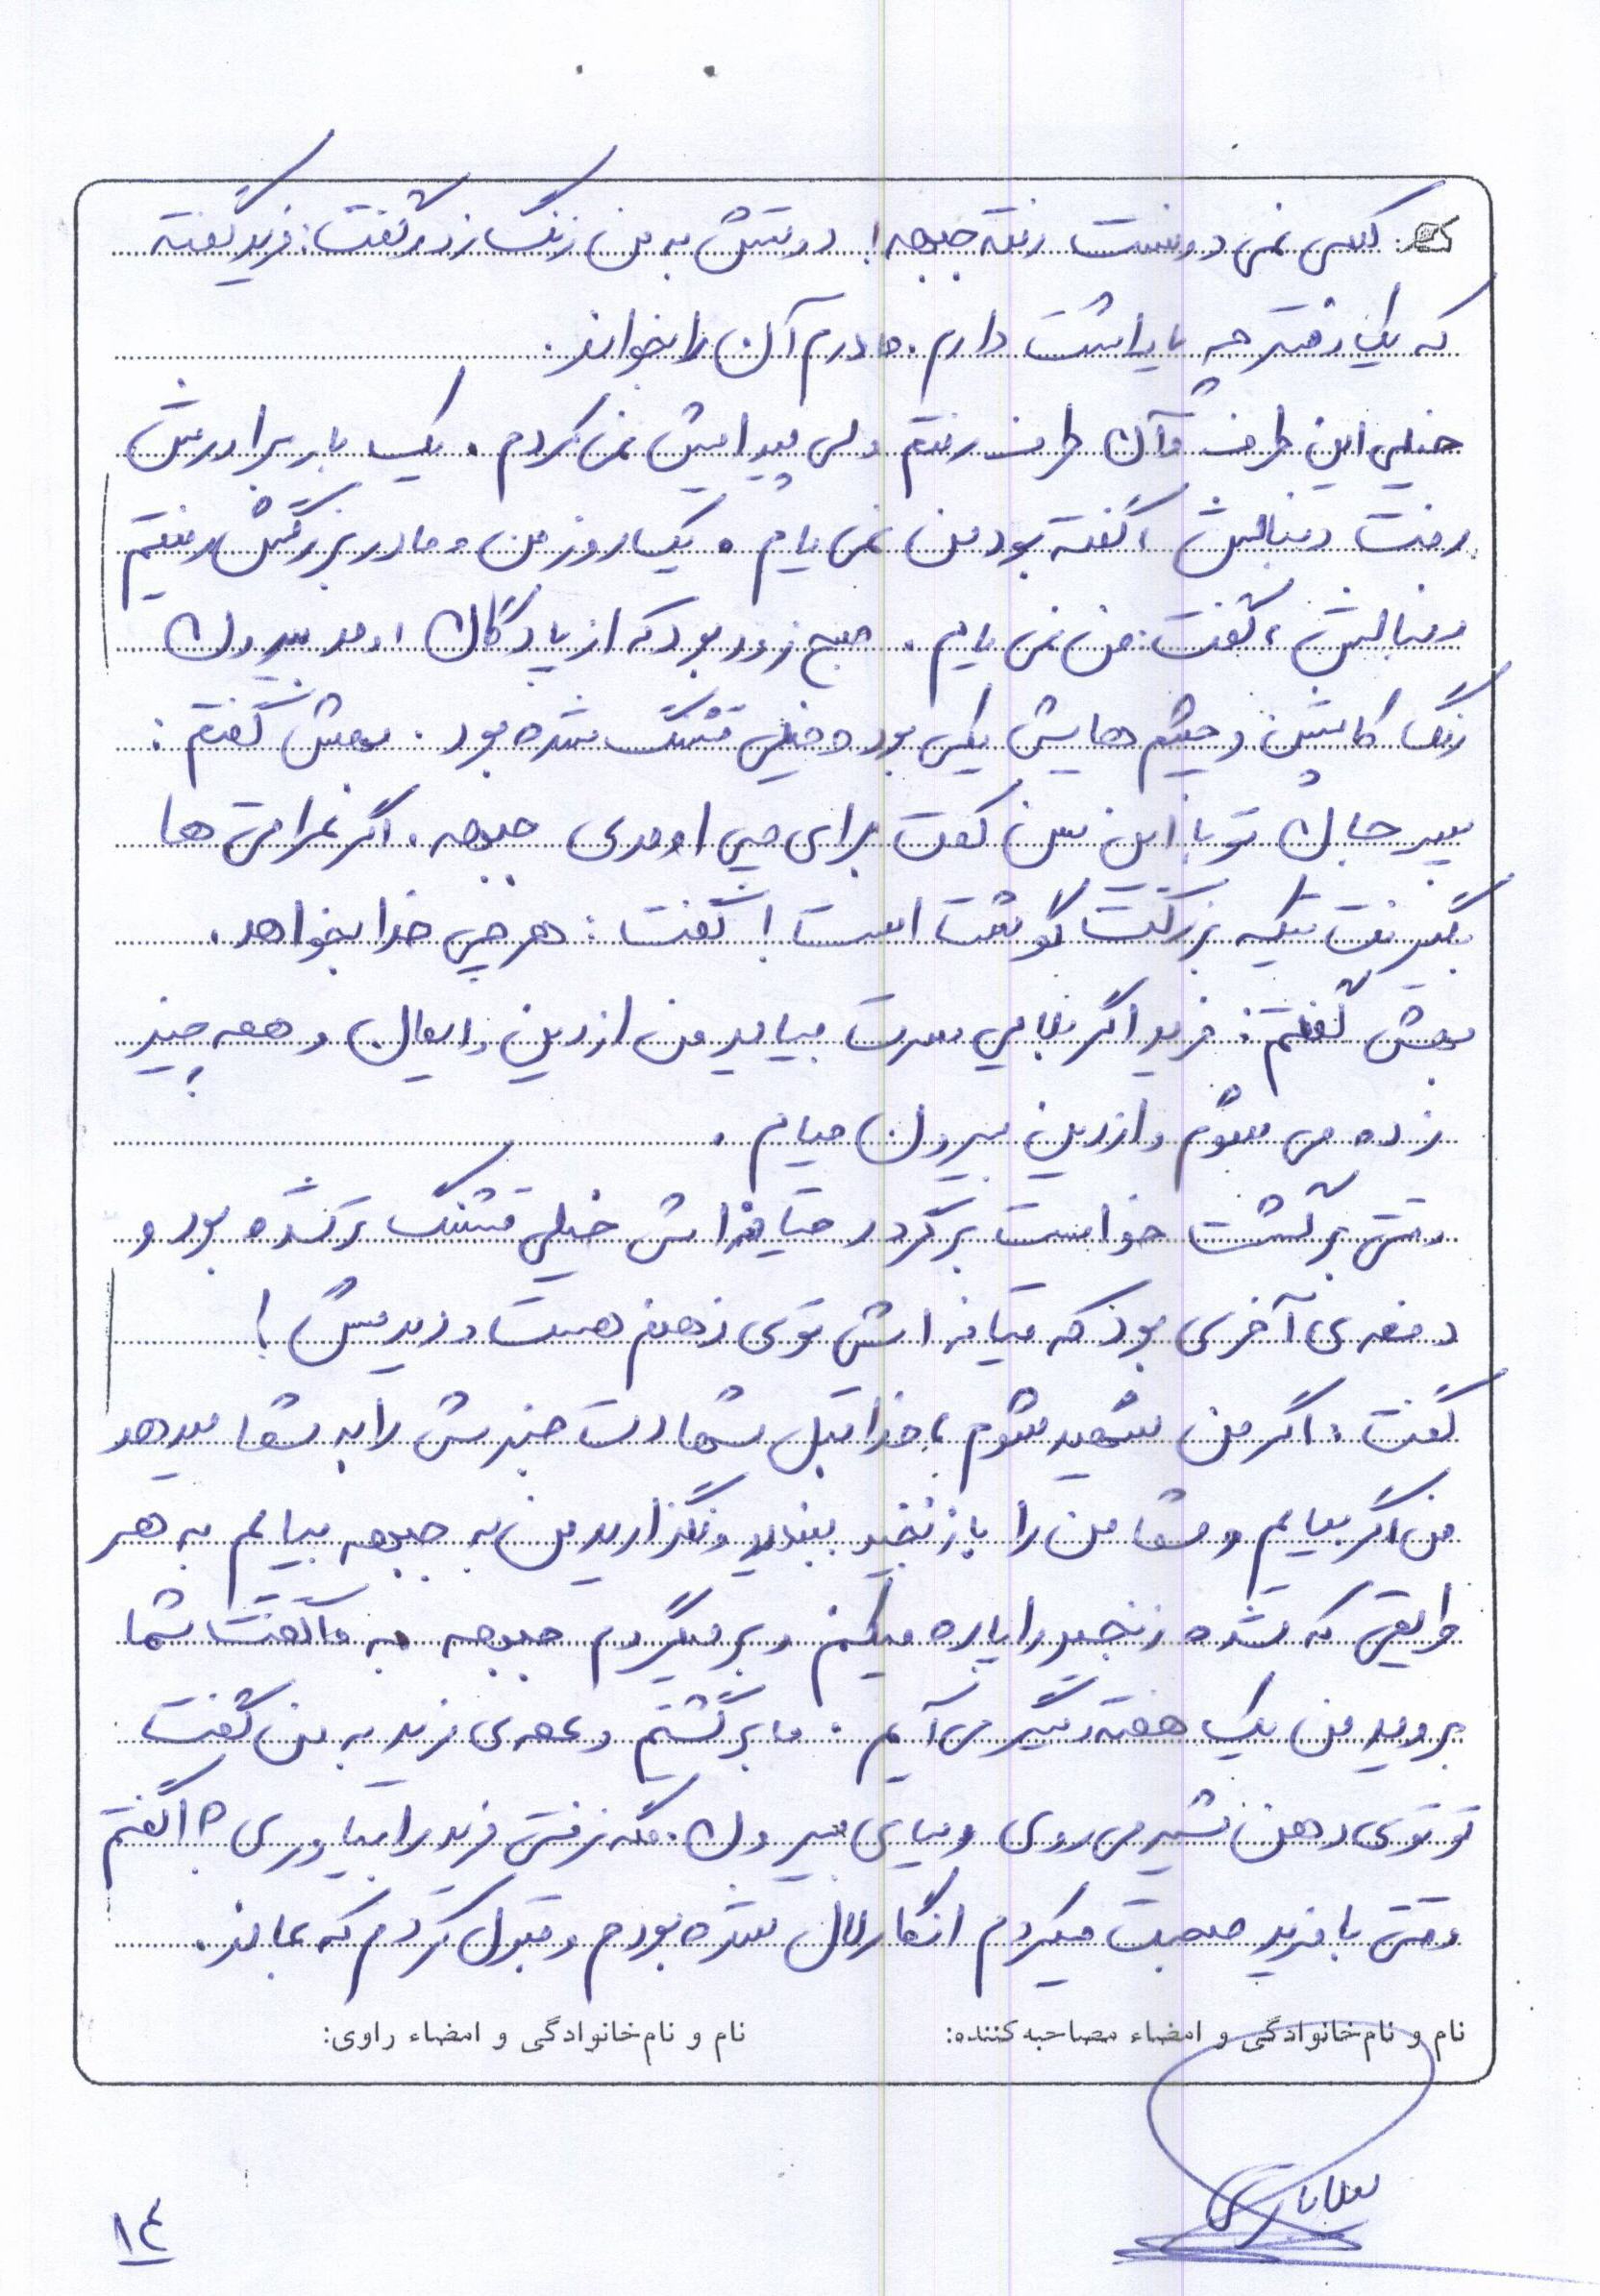 کسی نمی دونست رفته جبهه! دوستش به من زنگ زد و گفت: فرید گفته
که یک دفترچه یادداشت دارم. مادرم آن را بخواند.
خیلی این طرف و آن طرف رفتم ولی پیدایش نمی کردم. یک بار برادرش
رفت دنبالش، گفته بود من نمی یام. یک روز من و مادر بزرگش رفتیم
دنبالش، گفت: من نمی یام. صبح زود بود که از پادگان اومد بیرون
رنگ کاپشن و چشم هایش یکی بود و خیلی قشنگ شده بود. بهش گفتم:
پسر جان تو با این سن کمت برای چی اومدی جبهه. اگر عراقی ها
بگیرنت تیکه بزرگت گوشت است! گفت: هر چی خدا بخواهد.
بهش گفتم: فرید اگر بلایی سرت بیاید من از دین و ایمان و همه چیز
زده می شوم و از دین بیرون میام.
وقتی برگشت خواست برگرد قیافه اش خیلی قشنگ تر شده بود و
دفعه ی آخری بود که قیافه اش توی ذهنم هست و دیدمش!
گفت: اگر من شهید شوم، خدا قبل شهادت خبرش را به شما میدهد
من اگر بیایم و شما من را با زنجیر ببندید و نگذارید من به جبهه بیایم به هر
طریقی که شده زنجیر را پاره میکنم و برمیگردم جبهه به ما گفت شما
بروید من یک هفته دیگر می آیم. ما برگشتیم و عمه ی فرید به من گفت
تو توی دهن شیر می روی و میای بیرون. مگه نرفتی فرید را بیاوری؟! گفتم
وقتی با فرید صحبت میکردم انگار لال شده بودم و قبول کردم که بماند.
نام و نام خانوادگی و امضاء مصاحبه کننده: نام و نام خانوادگی و امضاء راوی:
۱۴